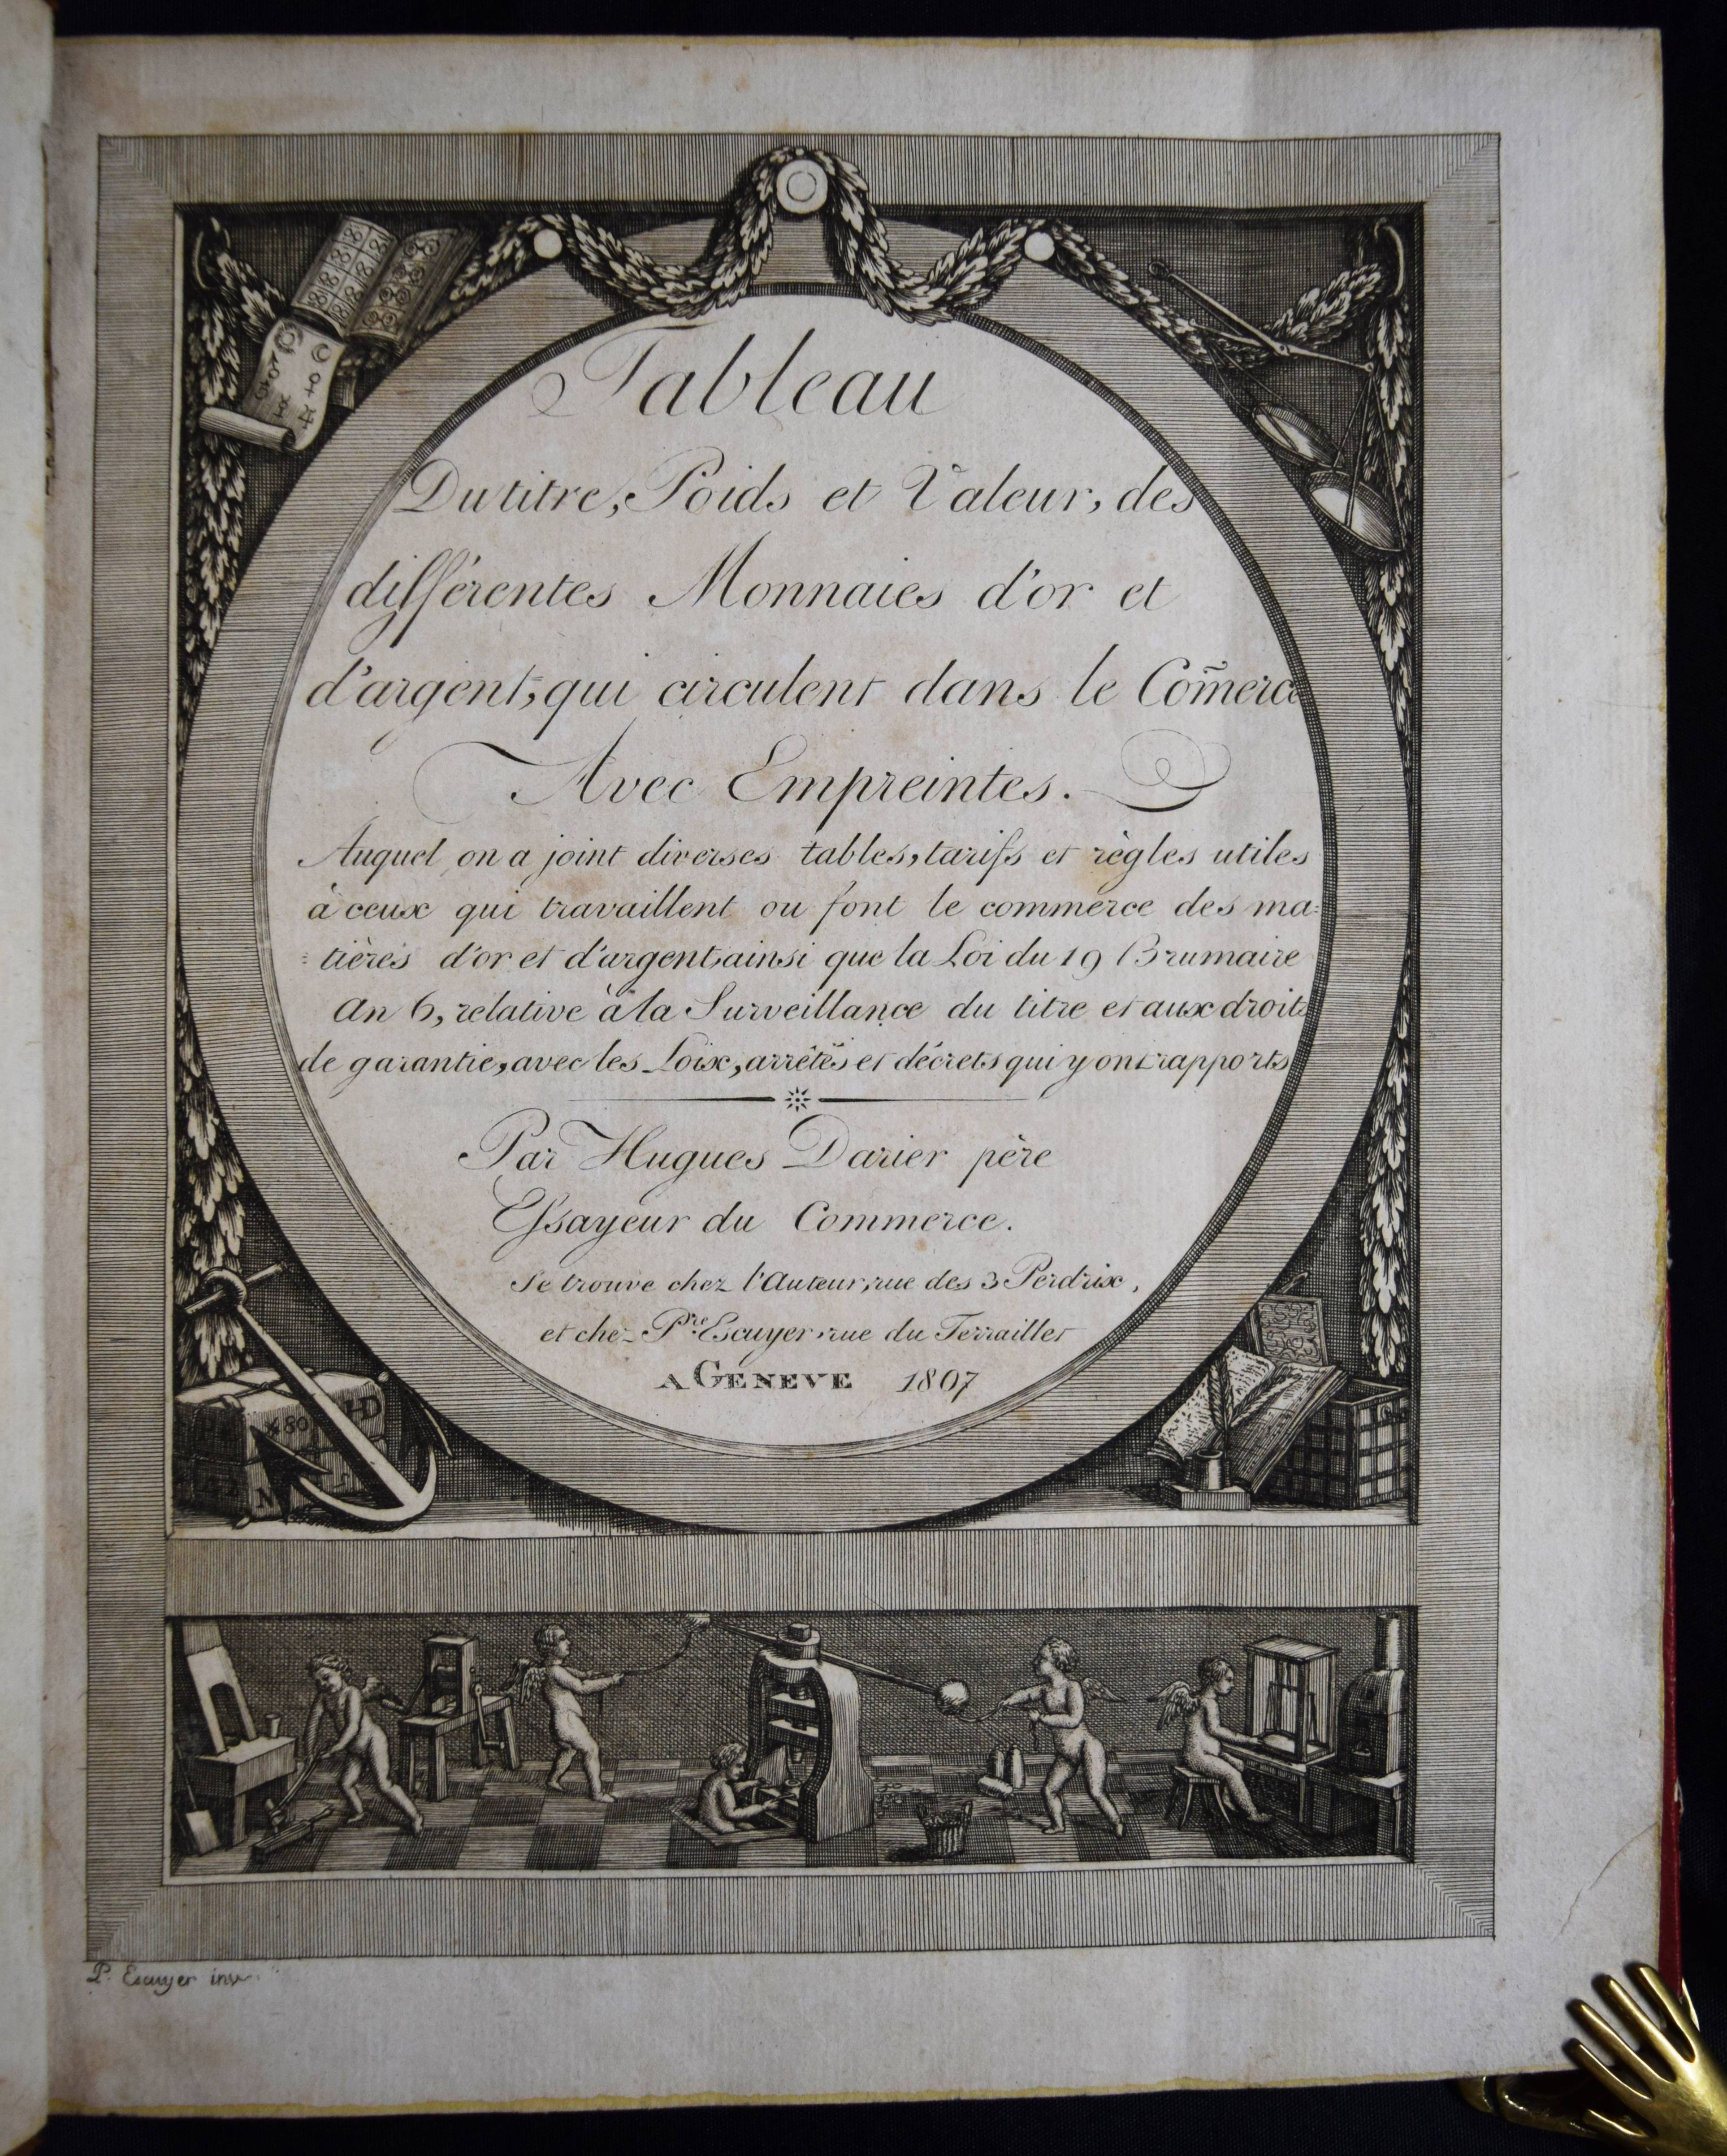 Tableau
Du titre, Poids et Valeur, des
différentes Monnaies d'or et
d'argent, qui circulent dans le Com̃erce
Avec Empreintes.
Auquel on a joint diverses tables, tarifs et règles utiles
à ceux qui travaillent ou font le commerce des ma=
=tières d'or et d'argent, ainsi que la Loi du 19 Brumaire
An 6, relative à la Surveillance du titre et aux droits
de garantie, avec les Loix, arrêtés et décrets qui y ont rapports
Par Hugues Darier père
Essayeur du Commerce.
Se trouve chez l'Auteur, rue des 3 Perdrix,
et chez Prre. Escuyer rue du Terrailler
A GENEVE 1807
80 HD
N
P. Escuyer inv.